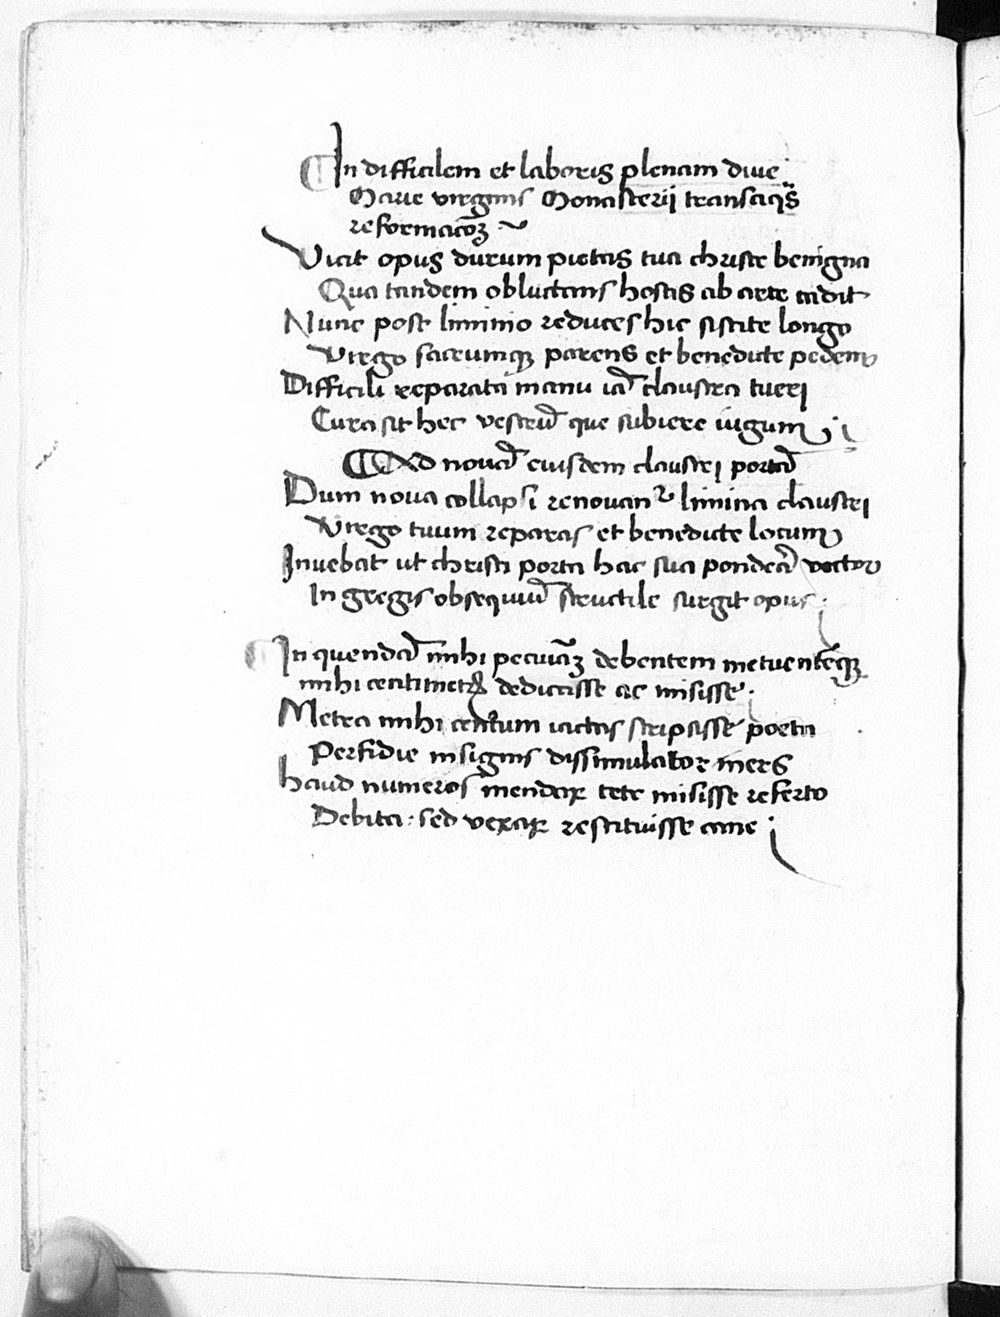 In difficilem et laboris plenam dive
Marie virginis Monasterii transaq̃s
reformacõꝫ
Vicit opus durum pietas tua christe benigna
Qua tandem obluctans hostis ab arte cadit
Nunc post limino reduces hic sistite longo
Virgo sacrumqꝫ parens et benedicte pedem
Difficili reparata manu iã claustra tueri
Cura sit hec vestrũ que subiere iugum
Ad nouã eiusdem claustri portã
Dum noua collapsi renouant᷑ limina claustri
Virgo tuum reparas et benedicte locum
Invehat ut christi porta hac sua pondera᷑ vector
In gregis obsequiũ structile surgit opus
In quendã mihi pecuniã debentem metuentẽqꝫ
mihi centimetrũ dedicasse ac misisse
Metra mihi centum iactas scripsisse poeta
Perfidie insignis dissimulator iners
haud numeros mendax tete misisse referto
Debita: sed verax restituisse cane